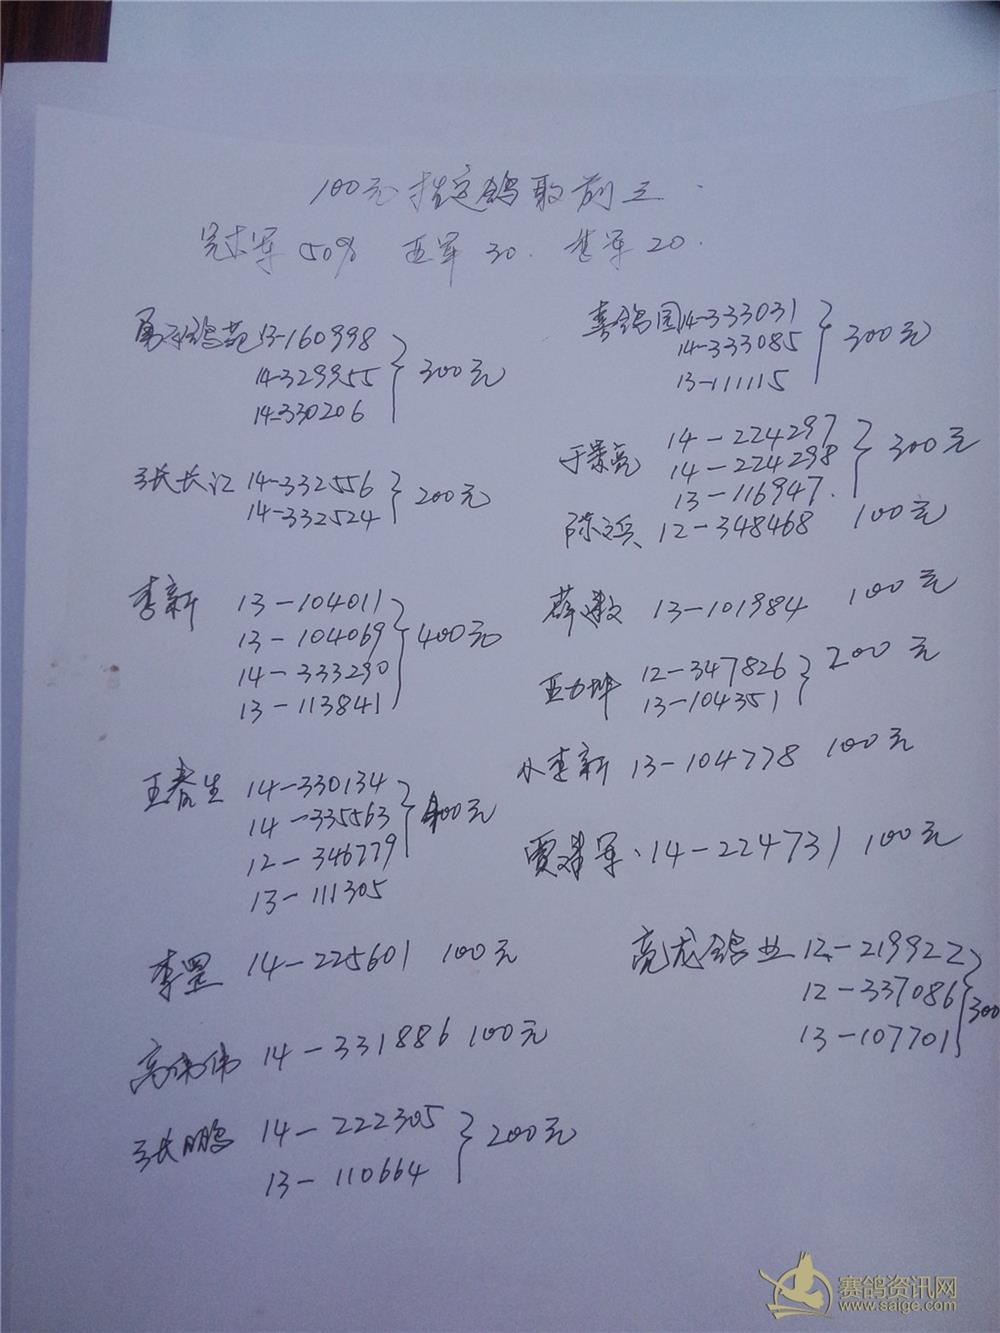 100元指定鸽取前三.
冠军 50% 亚军 30. 季军 20.
勇利鸽苑 13-160998
14-329955
14-330206
300元
张长江 14-332556
14-332524
200元
李新 13-104011
13-104069
14-333290
13-113841
400元
王春生 14-330134
14-335563
12-346779
13-111305
400元
李罡 14-225601 100元
高伟伟 14-331886 100元
张鹏 14-222305
13-110664
200元
喜鸽园 14-333031
14-333085
13-111115
300元
于景亮 14-224297
14-224298
13-116947.
300元
陈兵 12-348468 100元
薛 13-101984 100元
王力坤 12-347826
13-104351
200元
小李新 13-104778 100元
贾军、14-224731 100元
亮龙鸽业 12-219922
12-337086
13-107701
300
赛鸽资讯网
www.saige.com